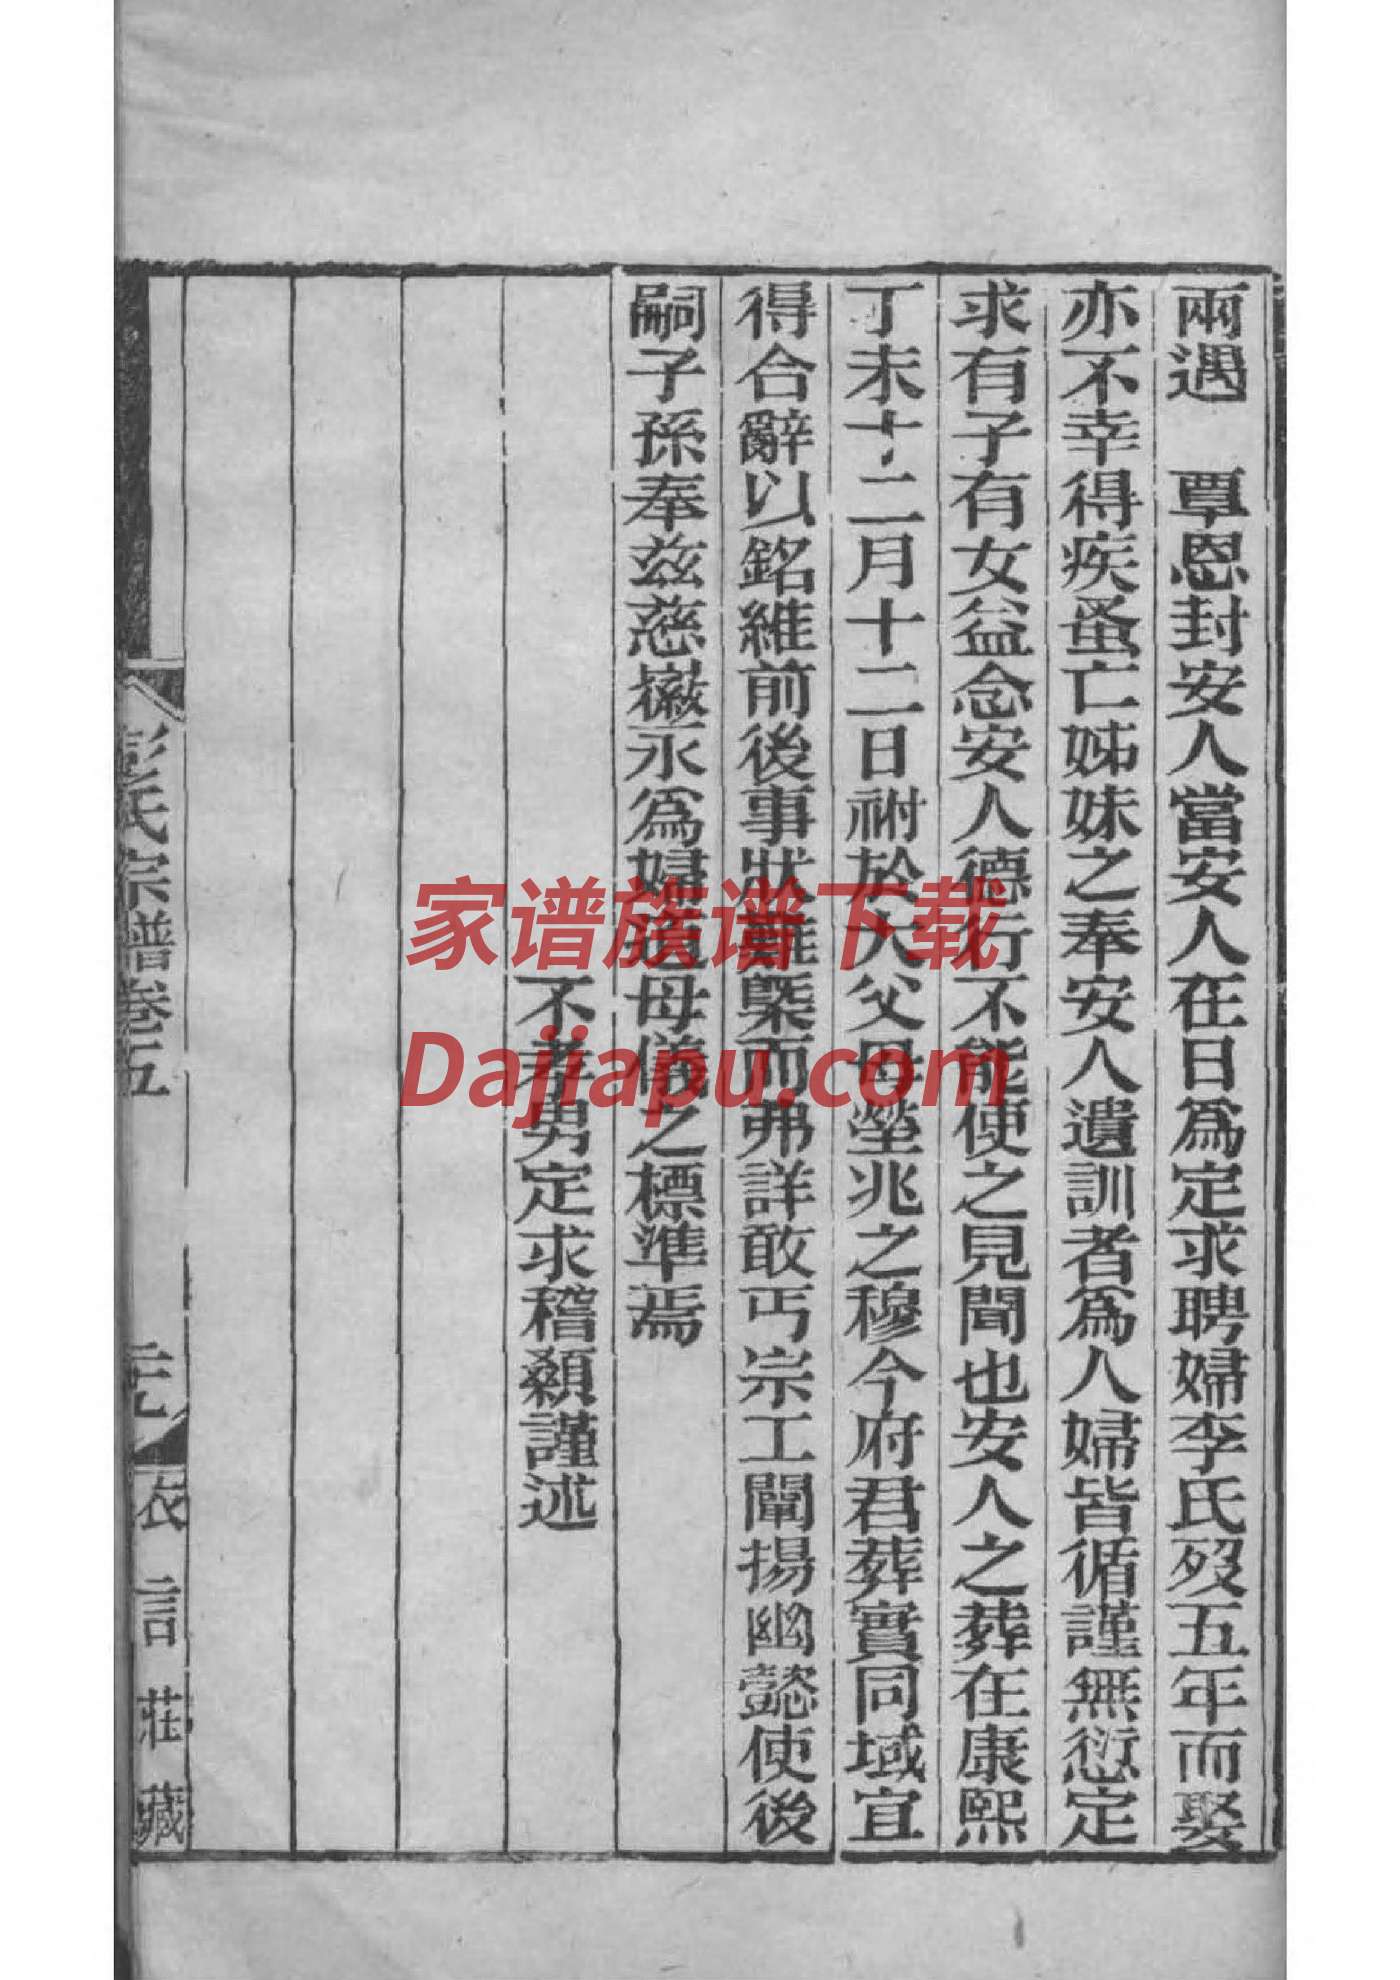 兩遇　覃恩封安人當安人在日爲定求聘婦李氏歿五年而娶
亦不幸得疾蚤亡姊妹之奉安人遺訓者爲人婦皆循謹無愆定
求有子有女益念安人德行不能使之見聞也安人之葬在康熙
丁未十二月十二日祔於大父母塋兆之穆今府君葬實同域宜
得合辭以銘維前後事狀難槩而弗詳敢丐宗工闡揚幽懿使後
嗣子孫奉茲慈徽永爲婦道母儀之標準焉
不孝男定求稽顙謹述
彭氏宗譜卷五
元
衣言莊藏
家谱族谱下载
Dajiapu.com